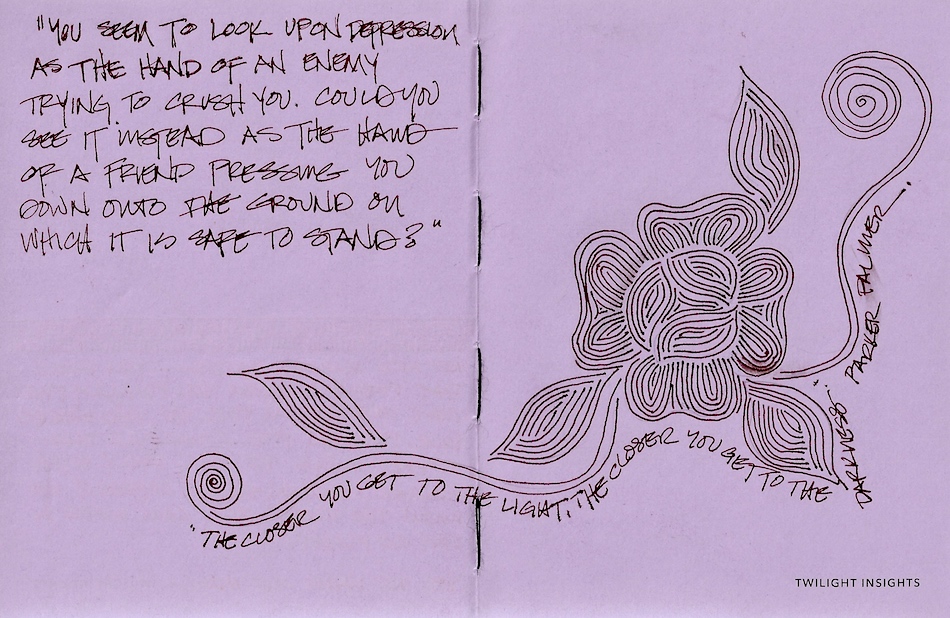 "YOU SEEM TO LOOK UPON DEPRESSION
AS THE HAND OF AN ENEMY
TRYING TO CRUSH YOU. COULD YOU
SEE IT INSTEAD AS THE HAND
OF A FRIEND PRESSING YOU
DOWN ONTO THE GROUND ON
WHICH IT IS SAFE TO STAND?"
"THE CLOSER YOU GET TO THE LIGHT, THE CLOSER YOU GET TO THE DARKNESS". PARKER PALMER
TWILIGHT INSIGHTS